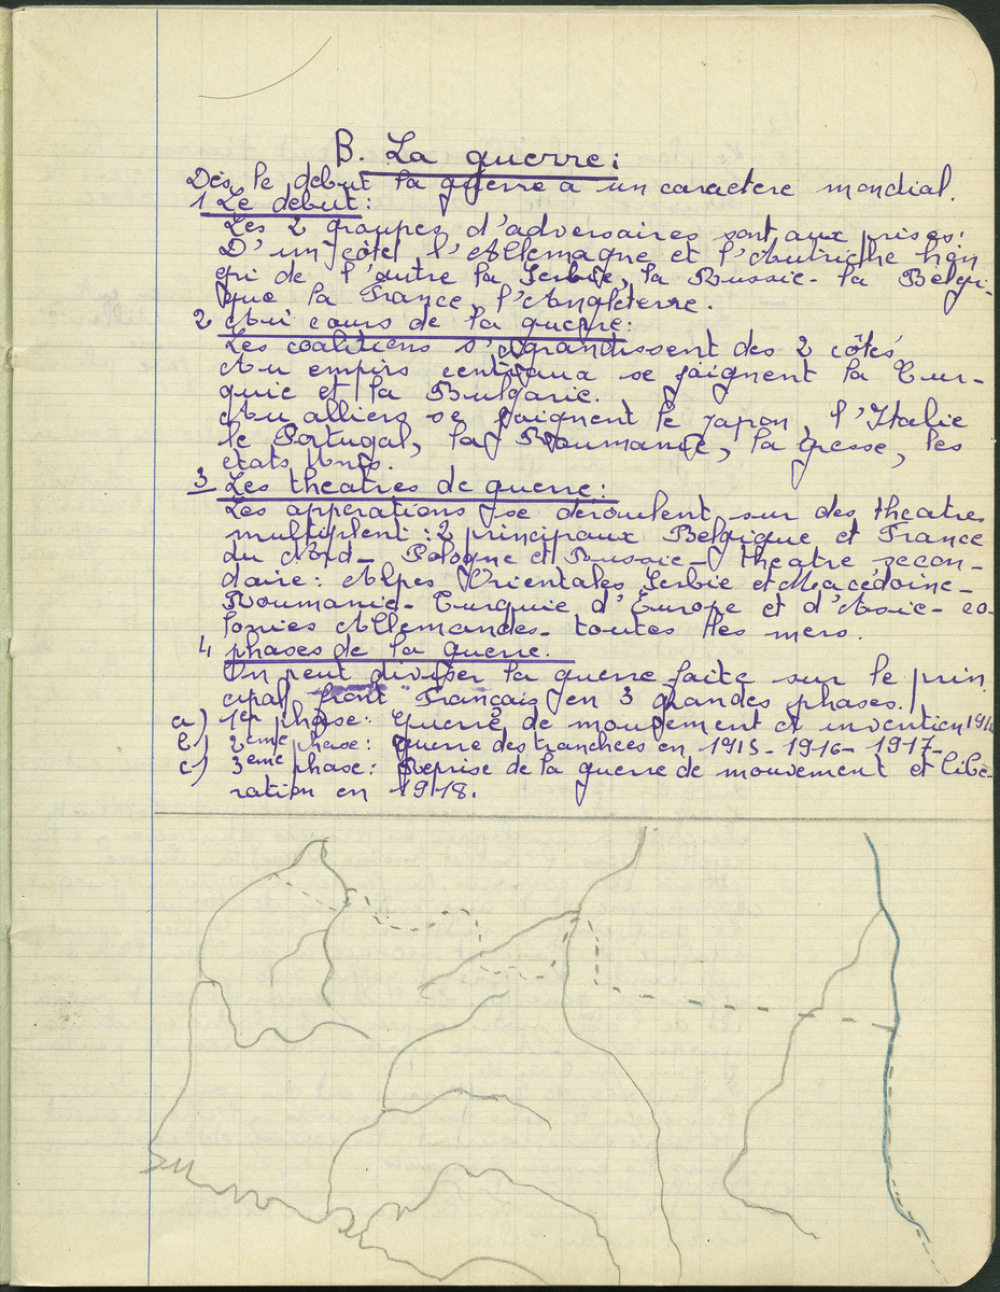 B. La guerre:
Dès le début la guerre a un caractere mondial.
1 Le début:
Les 2 groupes d'adversaires sont aux prises:
D'un côté l'Allemagne et l'Autriche hon
gri de l'autre la Serbie, la Russie - la Belgi-
que la France, l'Angleterre.
2 Au cours de la guerre:
Les coalitions s'agrandissent des 2 côtés
Au empirs centraux se joignent la Tur-
quie et la Bulgarie.
Au alliers se joignent le japon, l'Italie
le Portugal, la Roumanie, la gresse, les
états Unis.
3 Les theatres de guerre:
Les apperations se déroulent sur des theatres
multiplent: 2 principaux Belgique et France
du Nord - Pologne et Russie - theatre secon-
daire: Alpes Orientales Serbie et Macédoine -
Roumanie - Turquie d'Europe et d'Asie - co-
lonies Allemandes - toutes les mers.
4 phases de la guerre:
On peut diviser la guerre faite sur le prin
cipal front Français en 3 grandes phases.
a) 1er phase: guerre de mouvement et invention 1914
b) 2ème phase: guerre des tranchées en 1915 - 1916 - 1917 -
c) 3ème phase: Reprise de la guerre de mouvement et libé-
ration en 1918.